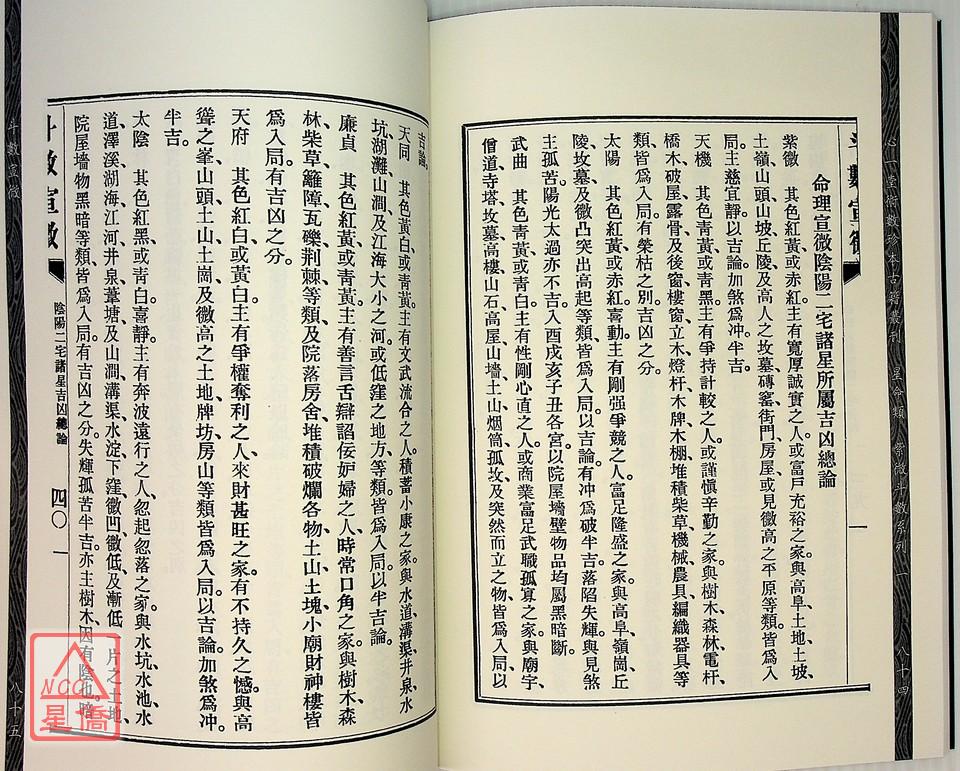 心一堂術數珍本古籍叢刊 星命類 紫微斗數系列 一 八十四
斗數宣微 一
命理宣微陰陽二宅諸星所屬吉凶總論
紫微 其色紅黃或赤紅主有寬厚誠實之人或富戶充裕之家與高阜土地土坡
土嶺山頭山坡丘陵及高人之坟墓磚窰街門房屋或見微高之平原等類皆為入
局主慈宜靜以吉論加煞為冲半吉
天機 其色青黃或青黑主有爭持計較之人或謹慎辛勤之家與樹木森林電杆
橋木破屋露骨及後窗樓窗立木燈杆木牌木棚堆積柴草機械農具編織器具等
類皆為入局有榮枯之別吉凶之分
太陽 其色紅黃或赤紅喜動主有剛强爭競之人富足隆盛之家與高阜嶺崗丘
陵坟墓及微凸突出高起等類皆為入局以吉論有冲為破半吉落陷失輝與見煞
主孤苦陽光太過亦不吉入酉戌亥子丑各宮以院屋墻壁物品均屬黑暗斷
武曲 其色青黃或青白主有性剛心直之人或商業富足武職孤寡之家與廟宇
僧道寺塔坟墓高樓山石高屋山墻土山烟筒孤坟及突然而立之物皆為入局以
吉論
天同 其色黃白或青黃主有文武流合之人積蓄小康之家與水道溝渠井泉水
坑湖灘山澗及江海大小之河或低窪之地方等類皆為入局以半吉論
廉貞 其色紅黃或青黃主有善言舌辯諂佞妒婦之人時常口角之家與樹木森
林柴草籬障瓦礫荆棘等類及院落房舍堆積破爛各物土山土塊小廟財神樓皆
為入局有吉凶之分
天府 其色紅白或黃白主有爭權奪利之人來財甚旺之家有不持久之憾與高
聳之峯山頭土山土崗及微高之土地牌坊房山等類皆為入局以吉論加煞為冲
半吉
太陰 其色紅黑或青白喜靜主有奔波遠行之人忽起忽落之家與水坑水池水
道澤溪湖海江河井泉葦塘及山澗溝渠水淀下窪微凹微低及漸低一片之土地
院屋墻物黑暗等類皆為入局有吉凶之分失輝孤苦半吉亦主樹木因有陰也暗
斗數宣微 陰陽二宅諸星吉凶總論 四〇 一
斗數宣微 八十五
NCC
星僑